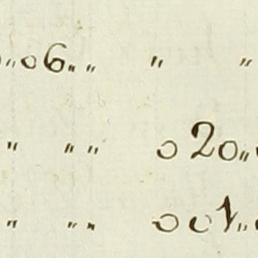 „ 06 „ „ „ „
„ „ „ 020 „
„ „ „ 001 „